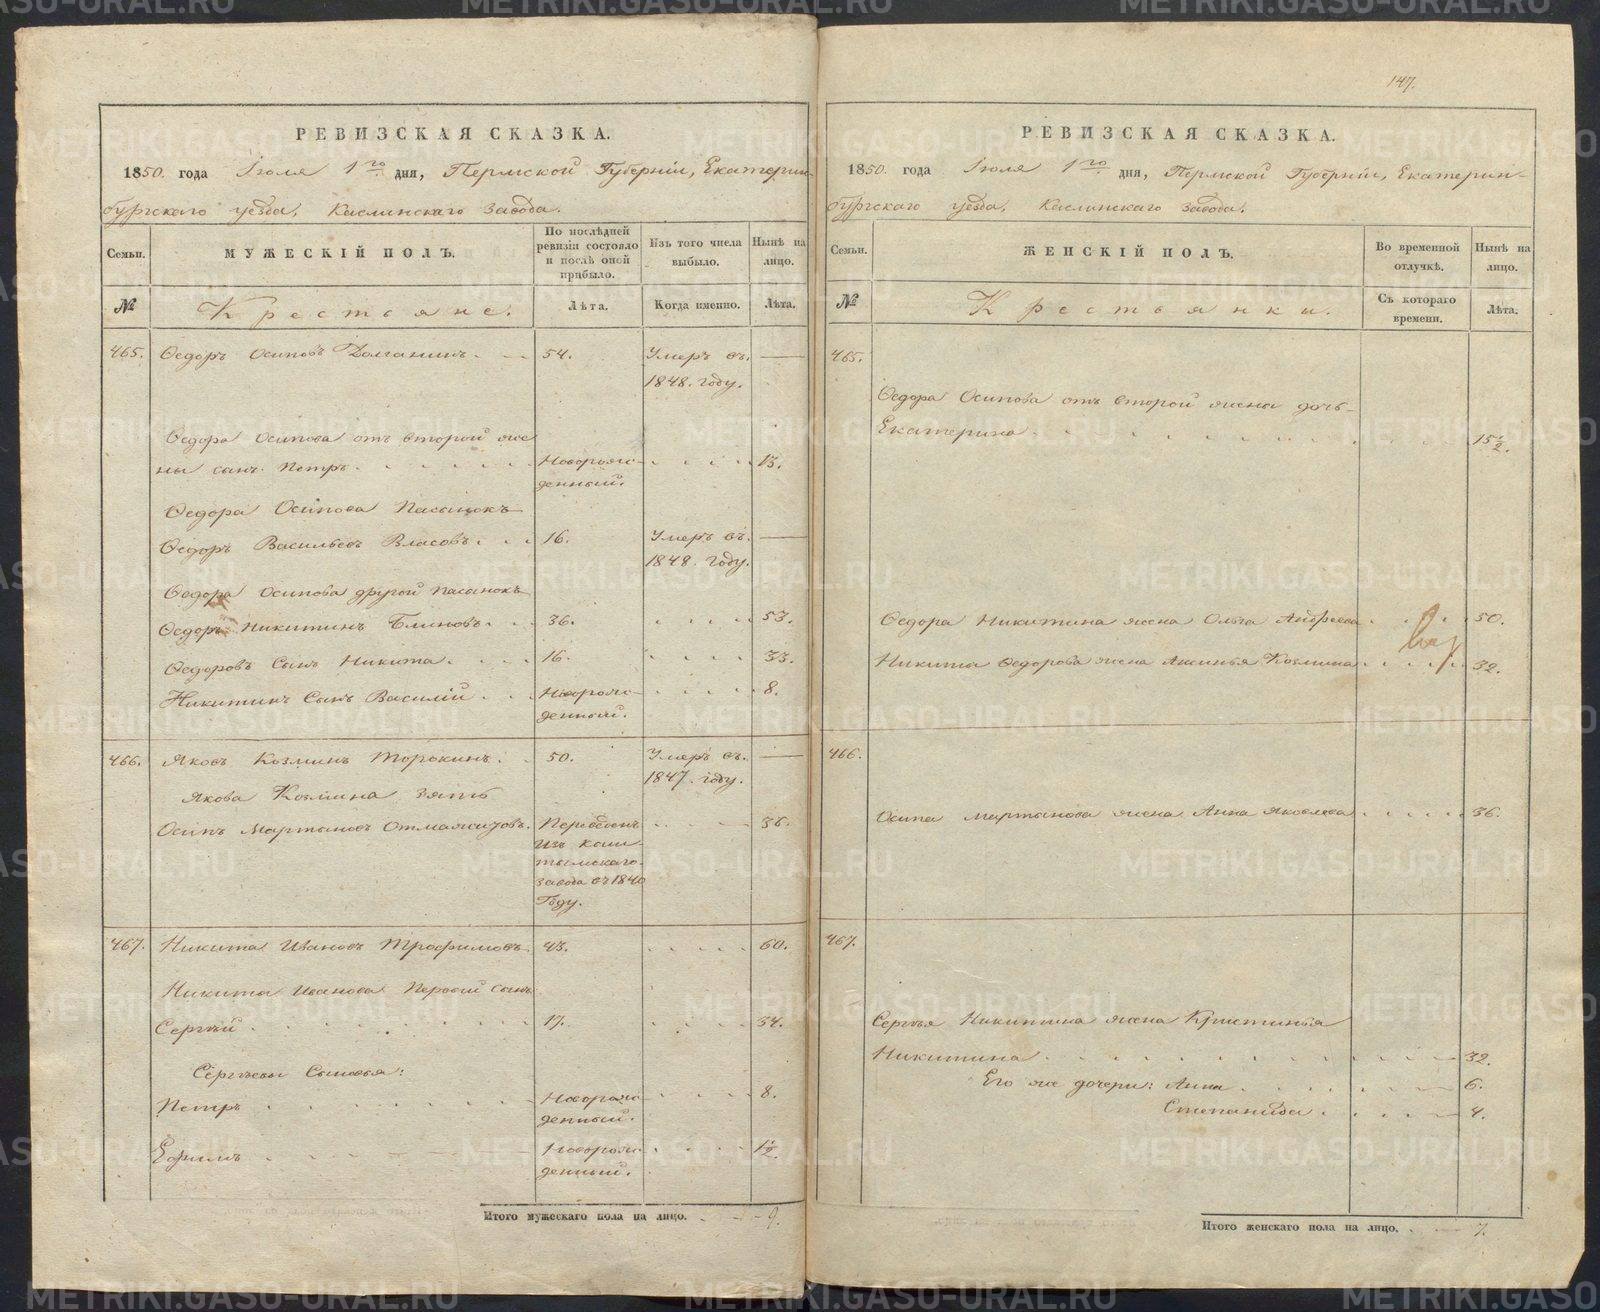 РЕВИЗСКАЯ СКАЗКА.
1850. года Іюля 1го дня, Пермской Губерніи, Екатерин-
бургскаго уезда, Каслинскаго Завода.
Семьи.
МУЖЕСКІЙ ПОЛЪ.
По послѣдней ревизіи состояло и послѣ оной прибыло.
Изъ того числа выбыло.
Нынѣ на лицо.
№
Крестьяне.
Лѣта.
Когда именно.
Лѣта.
465. Ѳедоръ Осиповъ Долганинъ. 54. Умеръ въ. —
1848. году.
Ѳедора Осипова отъ второй же
ны сынъ Петръ. Новорож- 13.
денный.
Ѳедора Осипова Пасынокъ
Ѳедоръ Васильевъ Власовъ. 16. Умеръ въ. —
1848. году.
Ѳедора Осипова другой пасынокъ
Ѳедоръ Никитинъ Блиновъ. 36. 53.
Ѳедоровъ Сынъ Никита. 16. 33.
Никитинъ Сынъ Василій. Новорож- 8.
денный.
466. Яковъ Козминъ Торокинъ. 50. Умеръ въ. —
1847. году.
Якова Козмина Зять
Осипъ Мартыновъ Переведенъ 36.
изъ Кыш-
тымскаго
завода въ 1840
Году.
467. Никита Ивановъ Трофимовъ 43. 60.
Никиты Иванова Первый сынъ
Сергѣй 17. 34.
Сергѣевы Сыновья:
Петръ Новорож- 8.
денный.
Ефимъ Новорож- 1½.
денный.
Итого мужескаго пола на лицо. 9.
147.
РЕВИЗСКАЯ СКАЗКА.
1850. года Іюля 1го дня, Пермской Губерніи, Екатерин-
бургскаго уезда, Каслинскаго Завода.
Семьи.
ЖЕНСКІЙ ПОЛЪ.
Во временной отлучкѣ.
Нынѣ на лицо.
№
Крестьянки.
Съ котораго времени.
Лѣта.
465.
Ѳедора Осипова отъ второй жены дочь
Екатерина 15½.
Ѳедора Никитина жена Ольга Андреева 50.
Никиты Ѳедорова жена Аксинья Козмина 32.
466.
Осипа Мартынова жена Анна Яковлева 36.
467.
Сергѣя Никитина жена Кристинья
Никитина 32.
Его же дочери: Анна 6.
Степанида 4.
Итого женскаго пола на лицо. 7.
METRIKI.GASO-URAL.RU